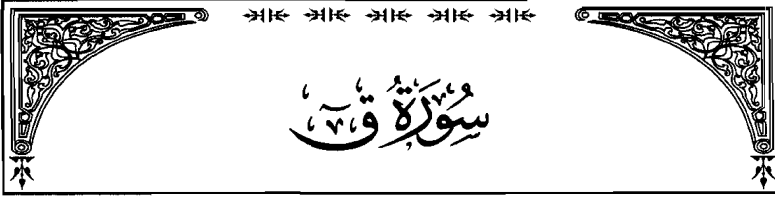 سُورَةُ قٓ